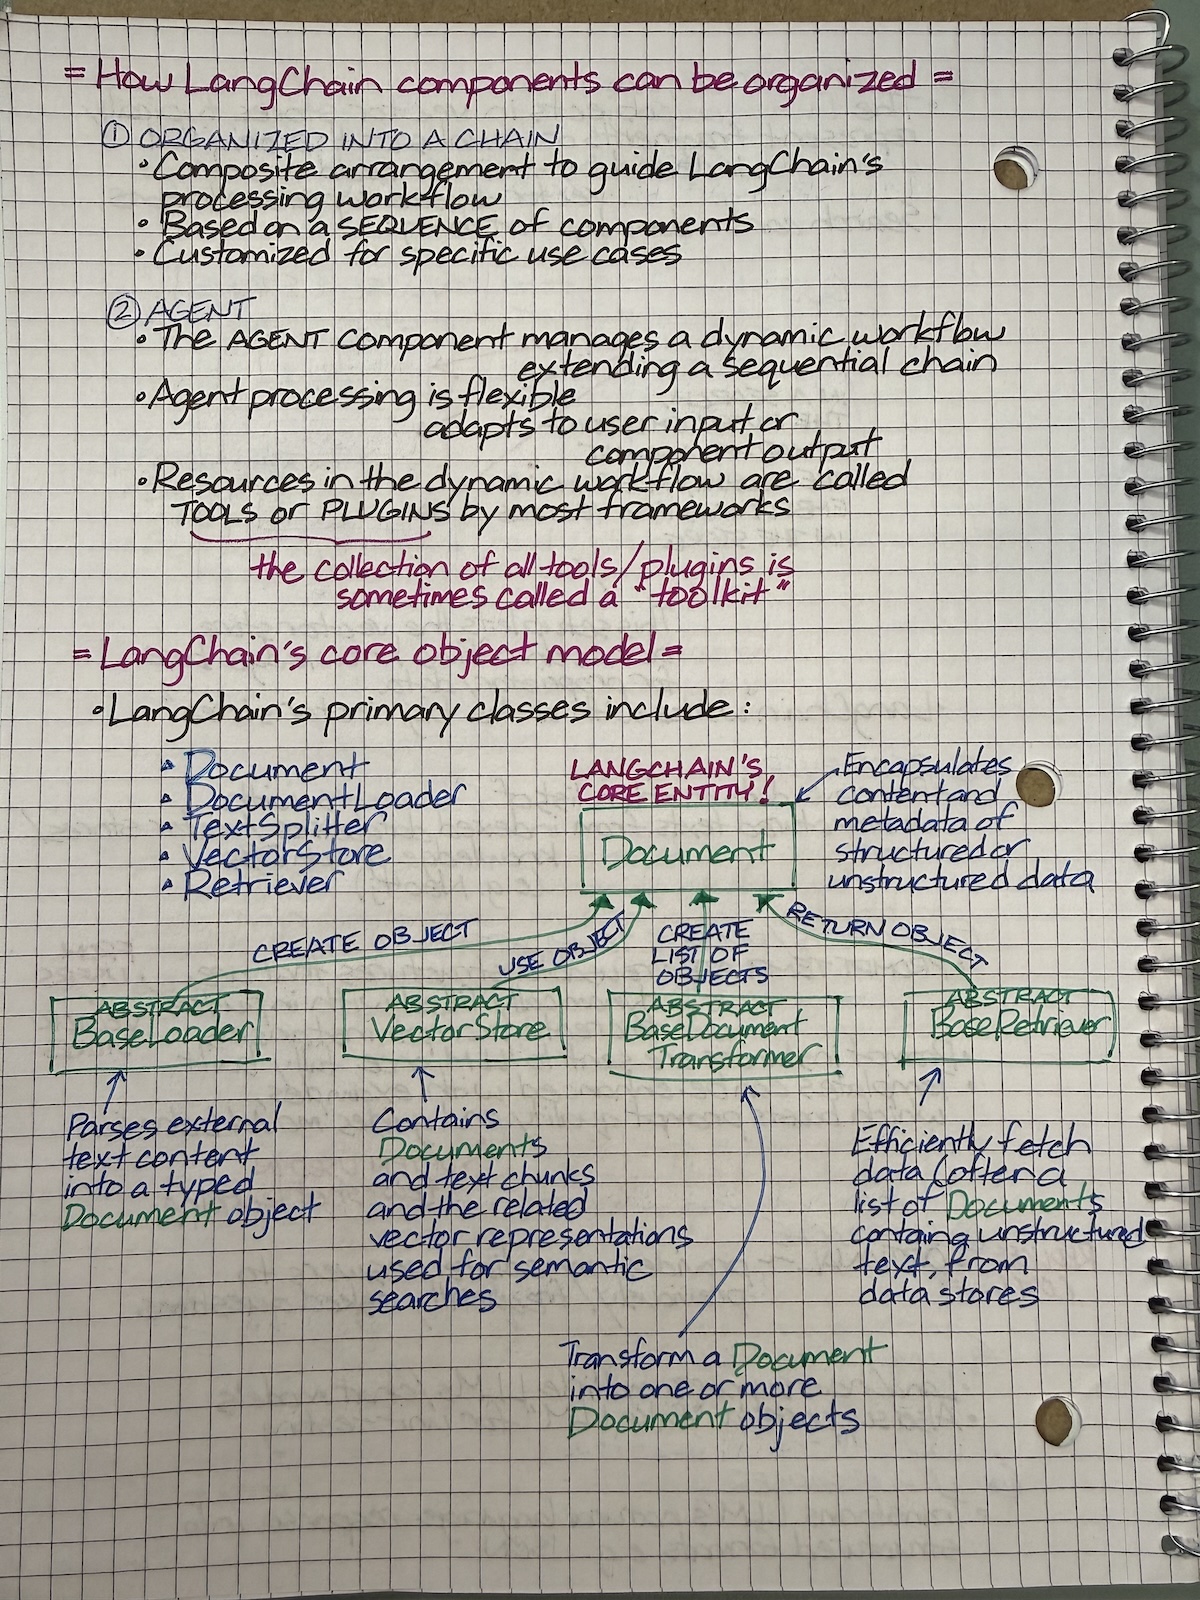 = How LangChain components can be organized =
① ORGANIZED INTO A CHAIN
• Composite arrangement to guide LangChain's
processing workflow
• Based on a SEQUENCE of components
• Customized for specific use cases
② AGENT
• The AGENT component manages a dynamic workflow
extending a sequential chain
• Agent processing is flexible
adapts to user input or
component output
• Resources in the dynamic workflow are called
TOOLS or PLUGINS by most frameworks
the collection of all tools/plugins is
sometimes called a "toolkit"
= LangChain's core object model =
• LangChain's primary classes include:
• Document
• DocumentLoader
• TextSplitter
• VectorStore
• Retriever
LANGCHAIN'S
CORE ENTITY!
Document
Encapsulates
content and
metadata of
structured or
unstructured data
CREATE OBJECT
USE OBJECT
CREATE
LIST OF
OBJECTS
RETURN OBJECT
ABSTRACT
BaseLoader
ABSTRACT
VectorStore
ABSTRACT
BaseDocument
Transformer
ABSTRACT
BaseRetriever
Parses external
text content
into a typed
Document object
Contains
Documents
and text chunks
and the related
vector representations
used for semantic
searches
Efficiently fetch
data (often a
list of Documents
containg unstructured
text, from
data stores
Transform a Document
into one or more
Document objects